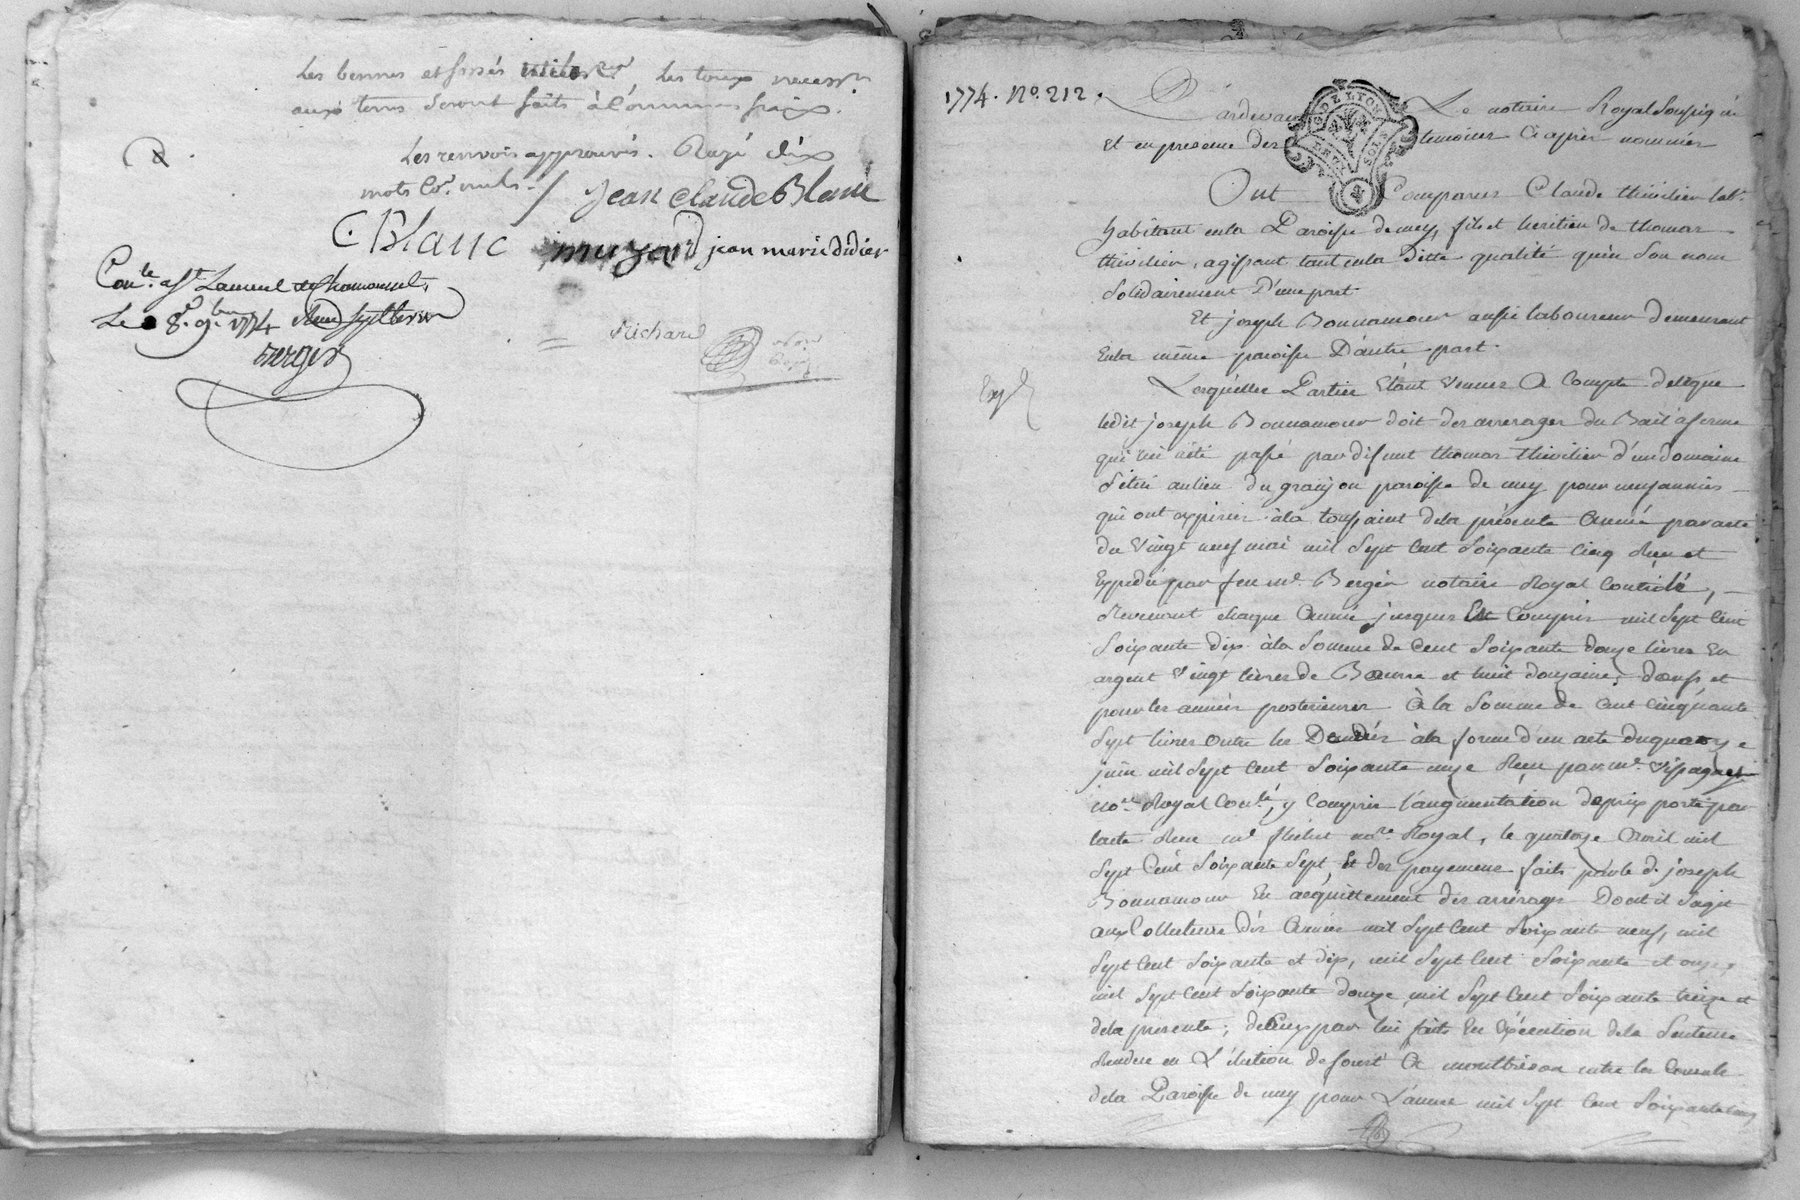 Les bennes et fossés utiles les toux necessres
aux terres seront faits à communs fraix.
Les renvois approuvés. Rayé dix
mots Co. nuls.
Jean claude Blanc
C. Blanc muzard jean marie didier
Con.le a St Laurent de Chamousset,
Le 8.e 9.bre 1774
Berger
Richard
1774. No. 212.
Pardevant Le notaire Royal soussigné
et en presence des temoins Ci après nommés
G. DE LYON
DEUX SOLS
Ont Comparus Claude thivilier lab.r
habitant en la Paroisse de mey, fils et heritier de thomas
thivilier, agissant tant en la Ditte qualité qu'en son nom
solidairement D'une part.
Et joseph Bonnamour aussi laboureur demeurant
En la même paroisse D'autre part.
Exp.é
Lesquelles Parties Etant venues A Compte de ce que
ledit joseph Bonnamour doit des arrerages du Bail a ferme
qui lui a été passé par difunt thomas thivilier d'un domaine
situé au lieu du granjon paroisse de mey pour neuf années
qui ont expirées à la toussaint de la présente année par acte
du vingt neuf mai mil sept cent soixante cinq Reçu et
Expedié par feu me. Berger notaire Royal Controlé,
Revenant chaque Année jusques Et Compris mil sept Cent
soixante dix à la somme de Cent soixante douze livres En
argent vingt livres de Beurre et huit douzaines d'oeufs et
pour les années posterieures À la somme de Cent Cinquante
sept livres outre les Denrées à la forme d'un acte du quatorze
juin mil sept cent soixante onze Reçu par me.
no.re Royal Con.lé, y Compris l'augmentation de prix porté par
l'acte Reçu me no.re Royal, le quatorze Avril mil
sept Cent soixante sept, Et des payemens faits par le d. joseph
Bonnamour En acquittement des arrérages Dont il s'agit
aux Collecteurs des Années mil sept Cent soixante neuf, mil
sept Cent soixante et dix, mil sept Cent soixante et onze
mil sept Cent soixante douze mil sept Cent soixante treize et
de la présente; de Ceux par lui faits En Exécution de la sentence
Rendue en L'élection de forest A montbrison entre les Consuls
de la Paroisse de mey pour L'année mil sept Cent soixante cinq